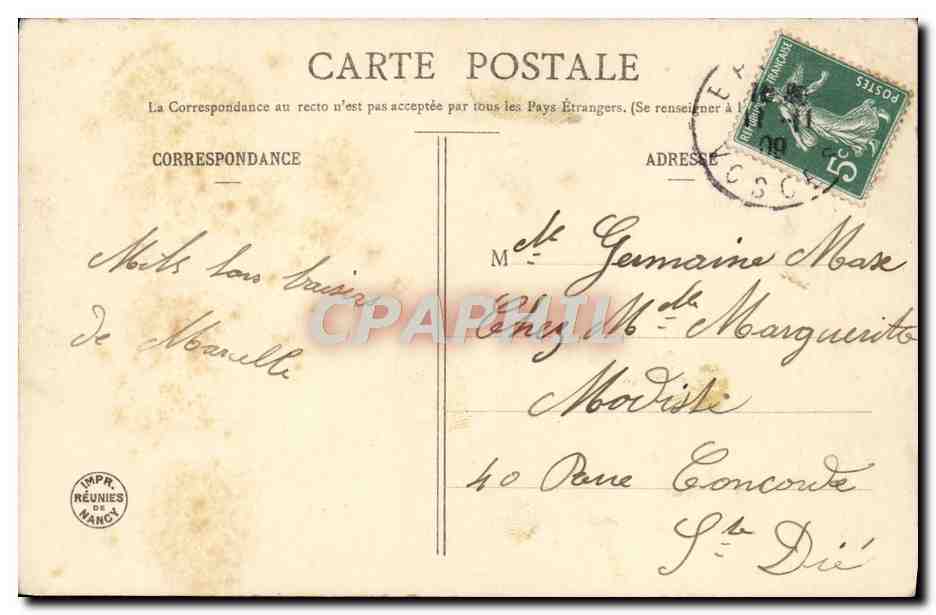 CARTE POSTALE
La Correspondance au recto n'est pas acceptée par tous les Pays Étrangers. (Se renseigner à l'
CORRESPONDANCE
ADRESSE
RÉPUBLIQUE FRANÇAISE
POSTES
5c
09
VOSGES
Mlle Germaine Max
Chez Mlle Marguerite
Modiste
40 Rue Concorde
St Dié
Mils bons baisers
de Marcelle
CPAPHIL
IMPR.
RÉUNIES
DE
NANCY